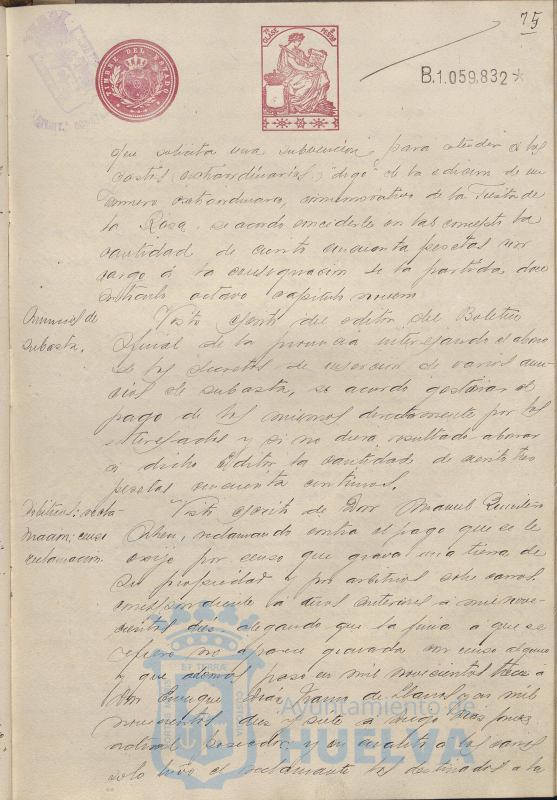 75
TIMBRE DEL ESTADO
CLASE
B.1.059.832
que solicita una subvencion para atender a los
gastos extraordinarios, "digo" de la edicion de un
número extraordinario, conmemorativo de la Fiesta de
la Raza, se acordó concederle en tal concepto la
cantidad de ciento cincuenta pesetas con
cargo á la consignacion de la partida doce
articulo octavo capitulo noveno
Anuncios de
subasta.
Visto escrito del editor del Boletin
Oficial de la provincia interesando el abono
de los derechos de insercion de varios anun-
cios de subasta, se acordó gestionar el
pago de los mismos directamente por los
interesados y si no diera resultado abonar
a dicho Editor la cantidad de ciento tres
pesetas cincuenta centimos.
Arbitrios: recla-
macion: censo
reclamacion.
Visto escrito de Don Manuel
reclamando contra el pago que se le
exije por censo que grava una tierra de
su propiedad y por arbitrios sobre carros
correspondiente á años anteriores á mil nove-
cientos alegando que la finca a que se
refiere no aparece gravada con censo alguno
y que además pasó en mil novecientos trece a
Don Enrique Diaz de Llanos y en mil
novecientos diez y siete a
y en cuanto a los carros
solo tuvo el reclamante los destinados a la
ET TERRAE CUSTODIA
Ayuntamiento de
HUELVA